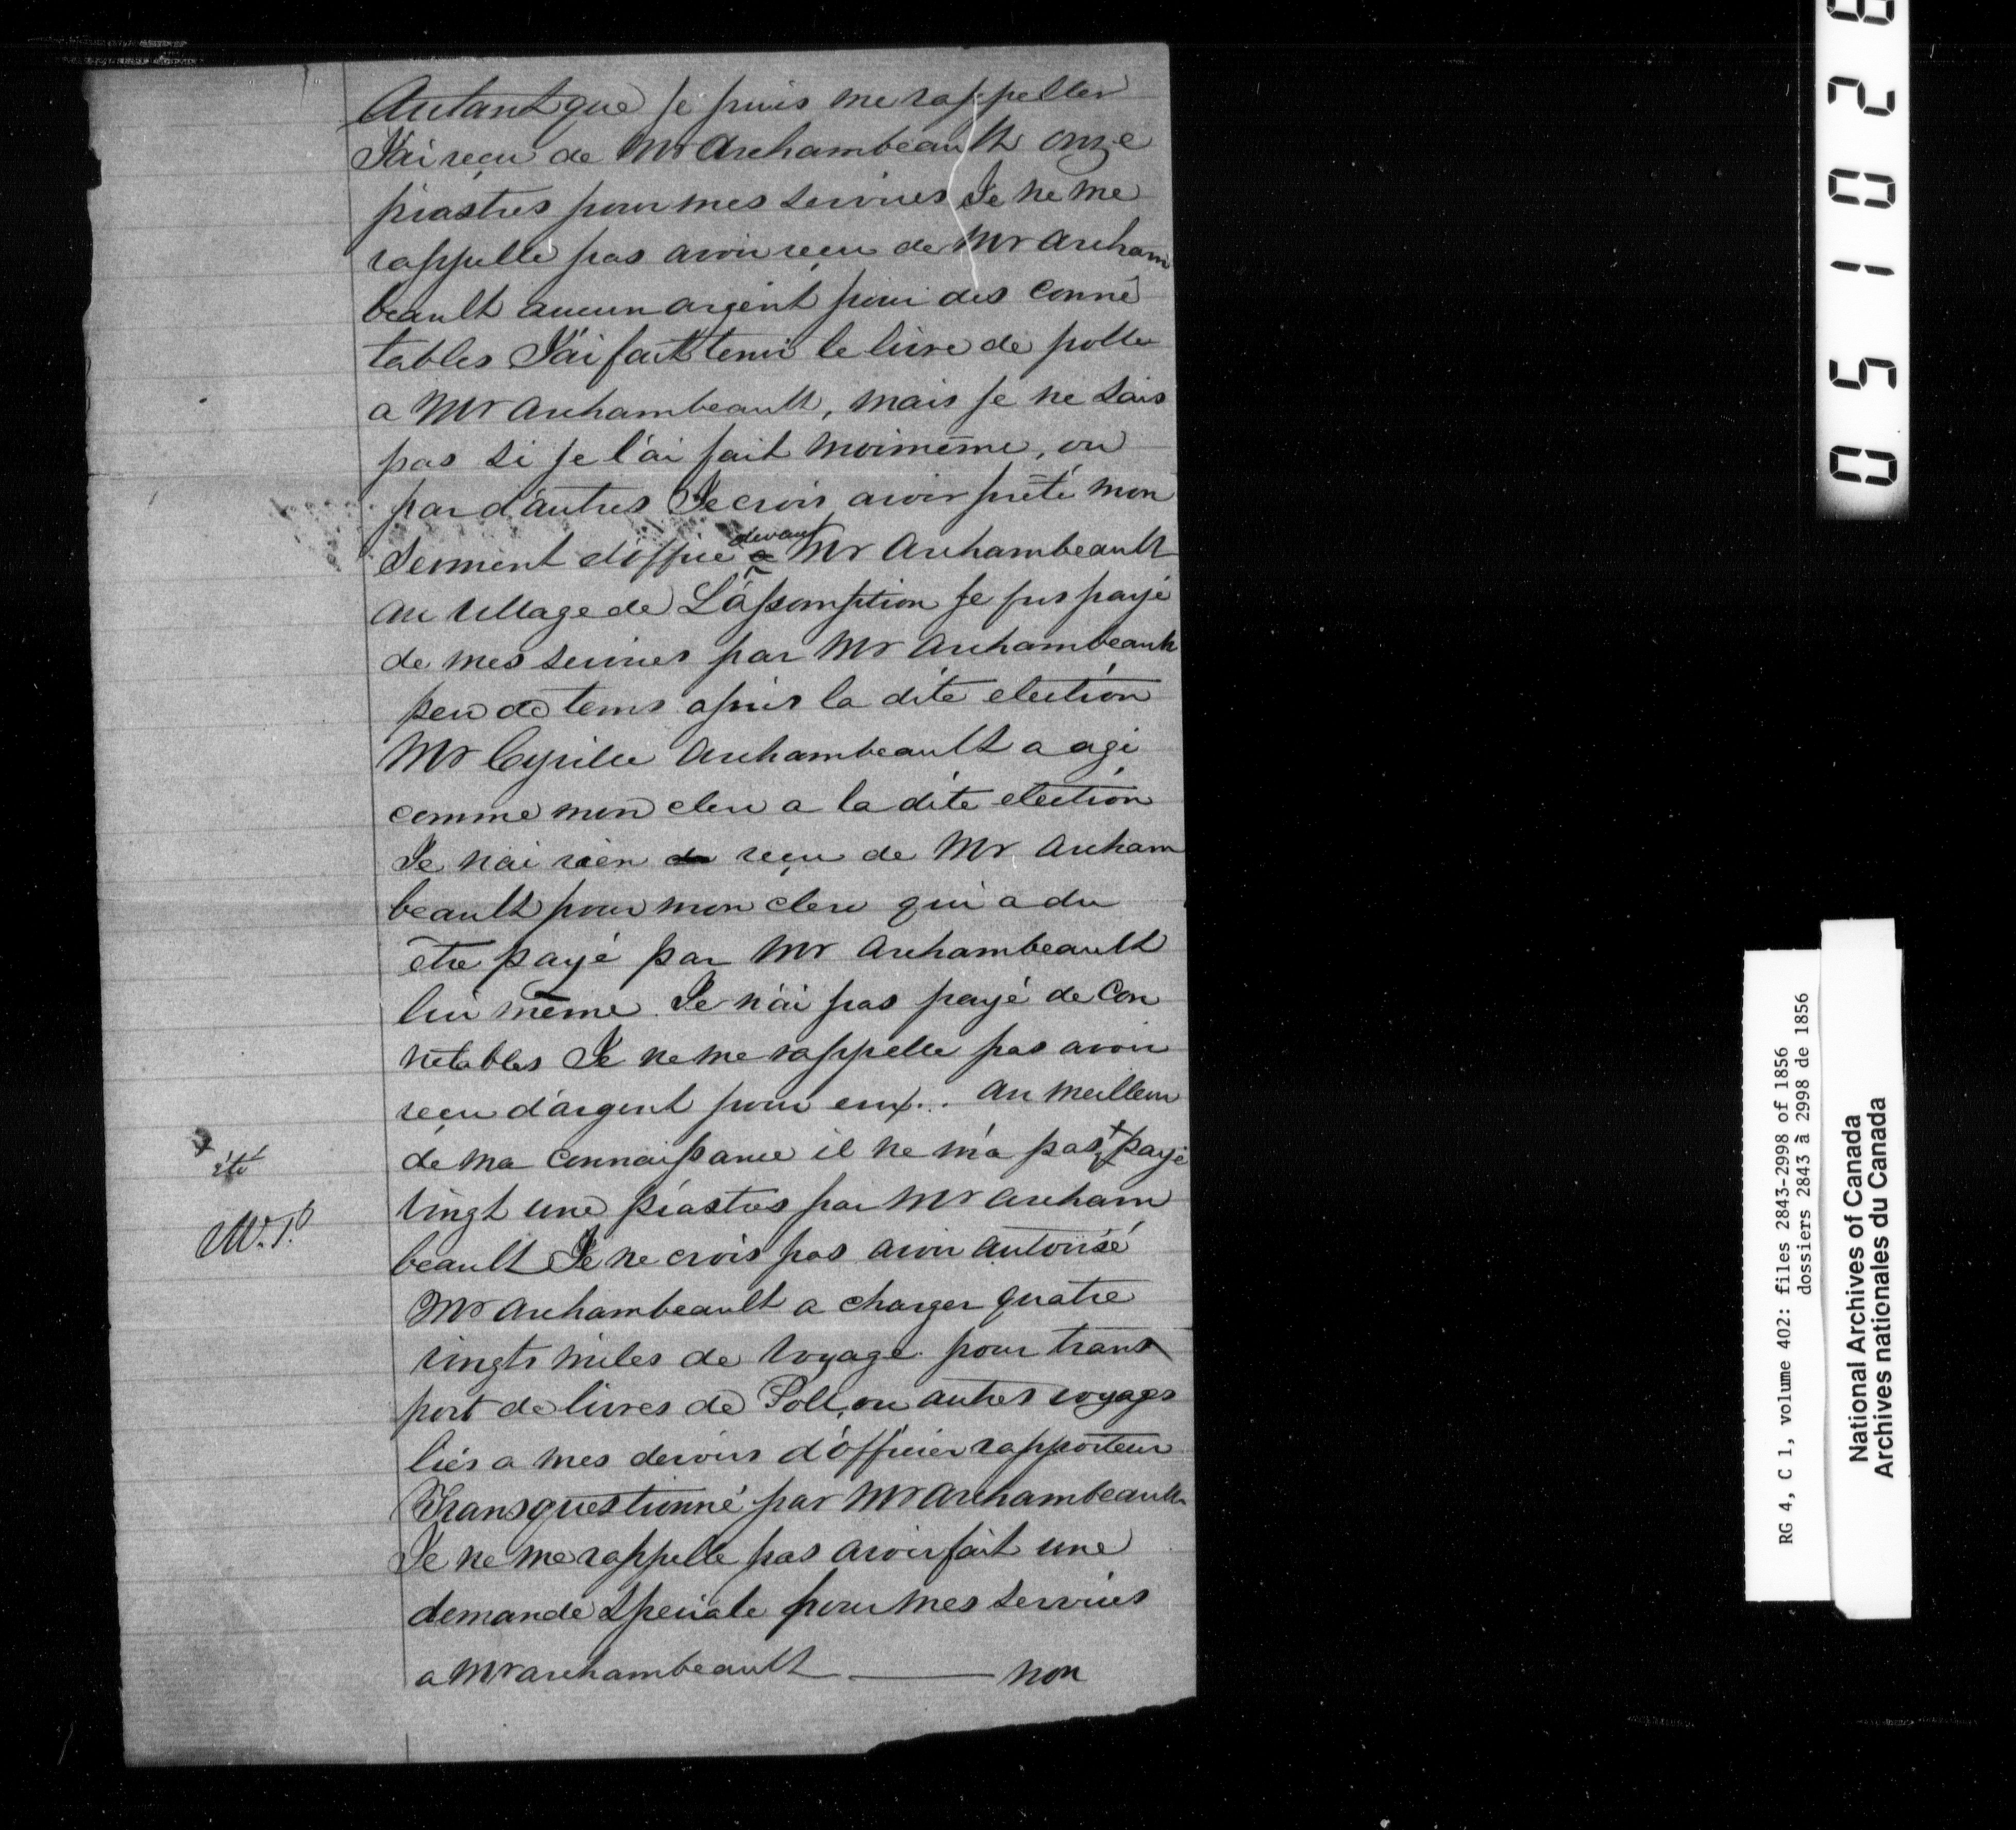 Autant que je puis me rappeller
J'ai reçu de Mr Archambeault onze
piastres pour mes services Je ne me
rappelle pas avoir reçu de Mr Archam
beault aucun argent pour des conné
tables J'ai fait tenir le livre de polle
a Mr Archambeault, mais je ne sais
pas si je l'ai fait moimême, ou
par d'autres Je crois avoir prêté mon
devant
serment d'office a Mr Archambeault
au village de L'assomption je fus payé
de mes services par Mr Archambeault
peu de tems après la dite election
Mr Cyrille Archambeault a agi
comme mon clerc a la dite election
Je n'ai rien de reçu de Mr Archam
beault pour mon clerc qui a du
être payé par Mr Archambeault
lui même. Je n'ai pas payé de Con
nétables Je ne me rappelle pas avoir
reçu d'argent pour eux... au meilleur
de ma connaissance il ne m'a pas + payé
+ été
M. P.
vingt une piastres par Mr Archam
beault Je ne crois pas avoir autorisé
Mr Archambeault a charger quatre
vingts miles de voyage pour trans
port de livres de Poll, ou autres voyages
liés a mes devoirs d'officier rapporteur
Transquestionné par Mr Archambeault
Je ne me rappelle pas avoir fait une
demande speciale pour mes services
a Mr Archambeault ——— non
051028
RG 4, C 1, volume 402: files 2843-2998 of 1856
dossiers 2843 à 2998 de 1856
National Archives of Canada
Archives nationales du Canada